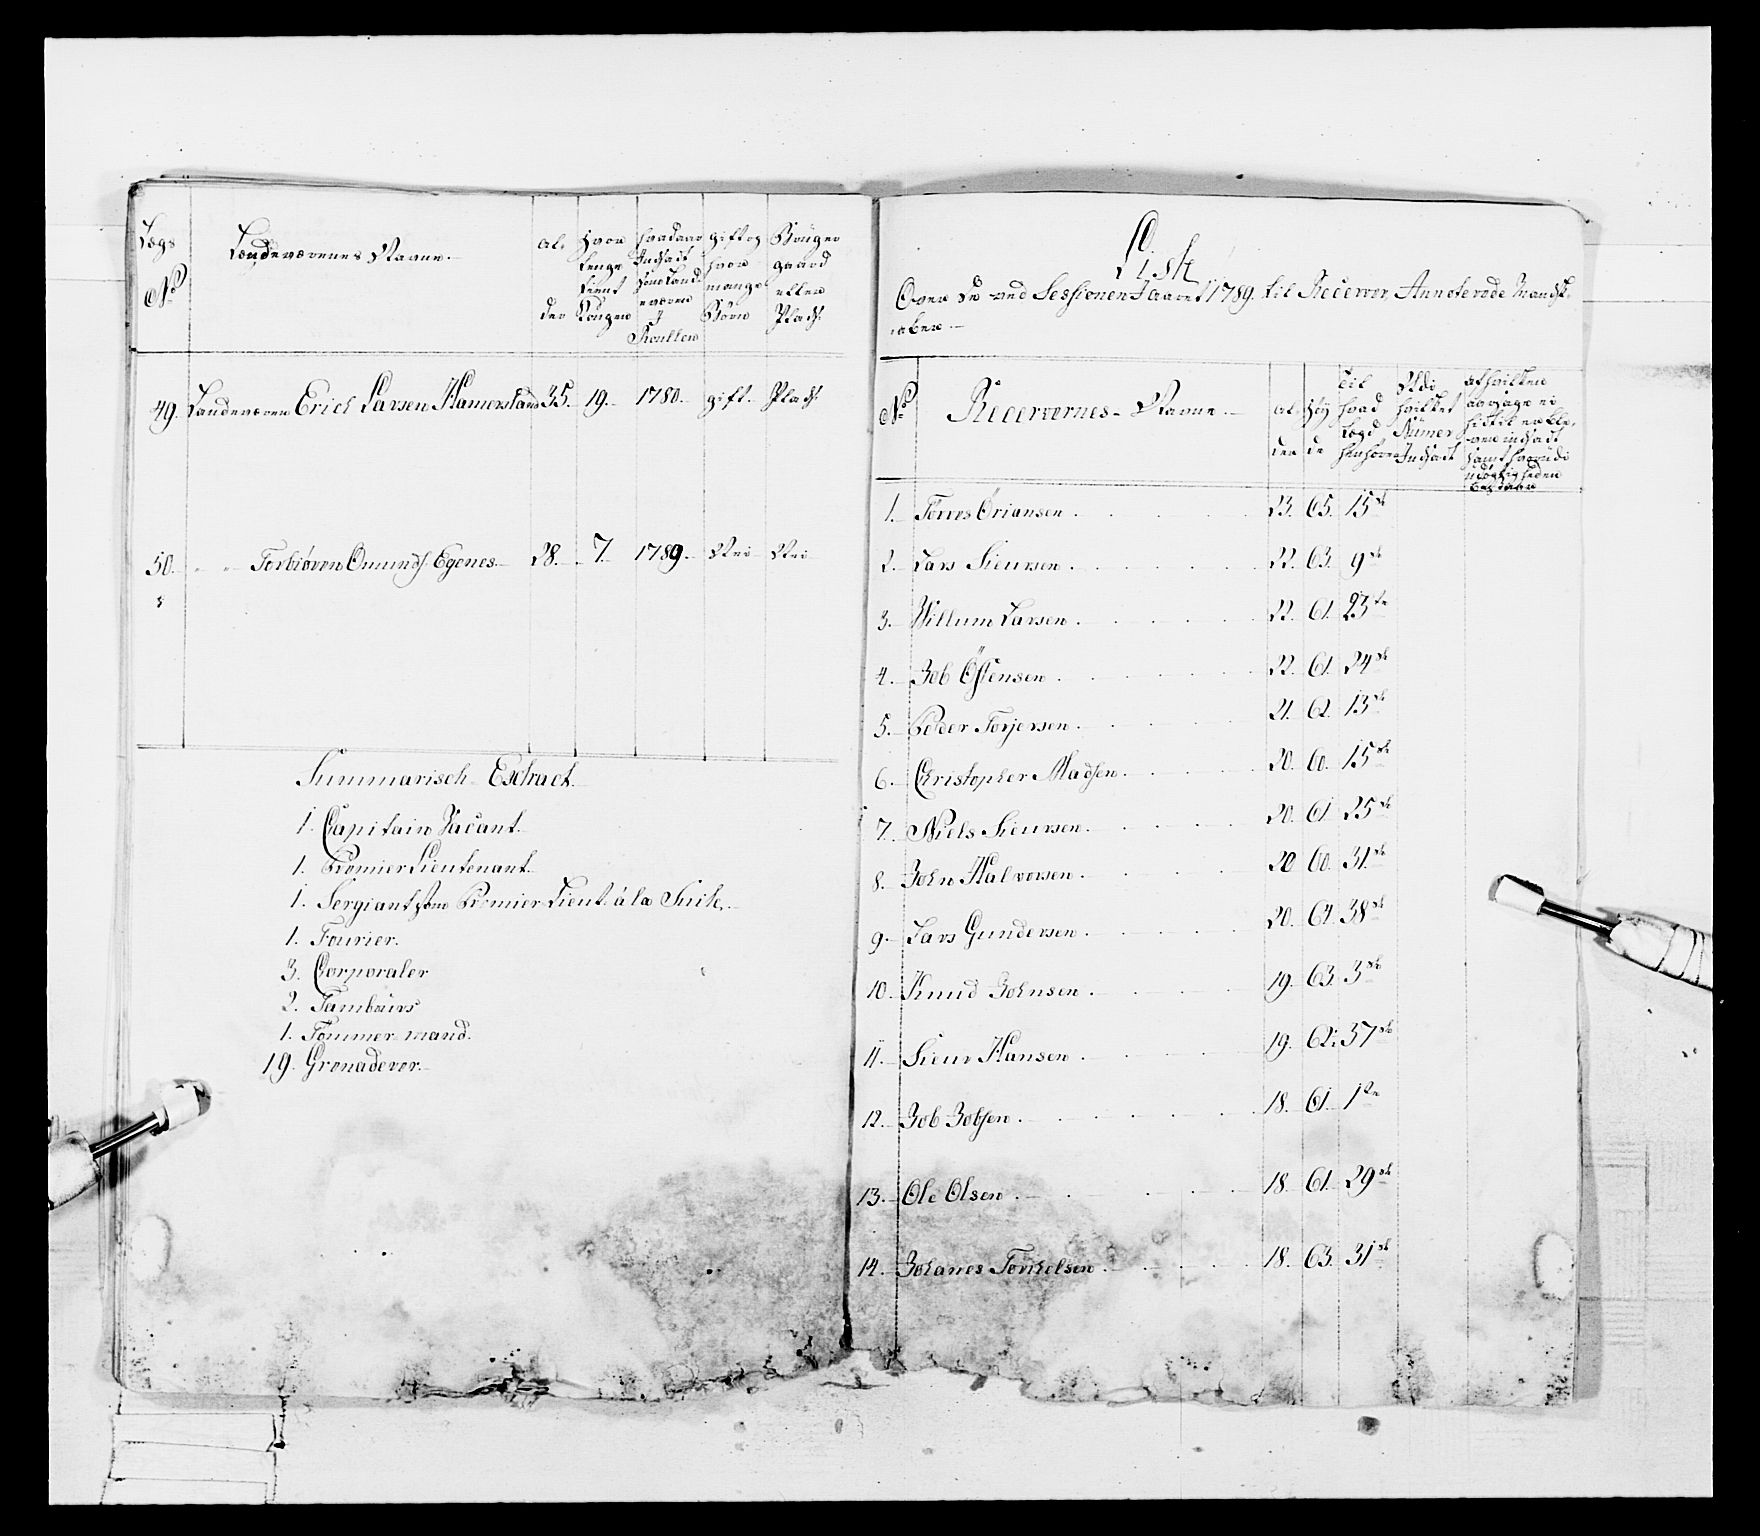 Lægs No
Landeværnes Navne.
Al- der
Hvor lenge tient Kongen
hvad aar Indsadt som Landeværn J Roullen
gift og hvor mange Børn
Bruger gaard eller Plads
49. Landeværn Erich Larsen Hamersland 35. 19. 1780. gift. Plads
50. " " Torbiøren Omunds. Egenes. 28. 7. 1789. Nei Nei
Summarisch Extract.
1. Capitain Vacant.
1. Premier Lieutenant.
1. Sergiant som Premier Lieut: á la Suite.
1. Fourier.
3. Corporaler
2. Tambours
1. Tömmer mand.
19. Grenaderer.
List
Over de ved Sessionen J aaret 1789. til Recerver Annoterede Mandsk-
aber.
No
Recervernes Navne.
Al- der
Høy de
til hvad Lægd henhører
Udi hvilket Numer Indsadt
1. Torres Öriansen 23. 65. 15de
2. Lars Siursen 22. 63. 9de
3. Willum Larsen 22. 61. 23de
4. Job Östensen 22. 61. 24de
5. Peder Torjersen 21. 62. 13de
6. Christopher Madsen 20. 60. 15de
7. Niels Siursen 20. 61. 25de
8. John Halvorsen 20. 60. 31de
9. Lars Gundersen 20. 64. 38de
10. Knud Johnsen 19. 63. 3de
11. Siur Hansen 19. 62. 37de
12. Job Jobsen 18. 61. 1te
13. Ole Olsen 18. 61. 29de
14. Johanes Torkelsen 18. 63. 31de